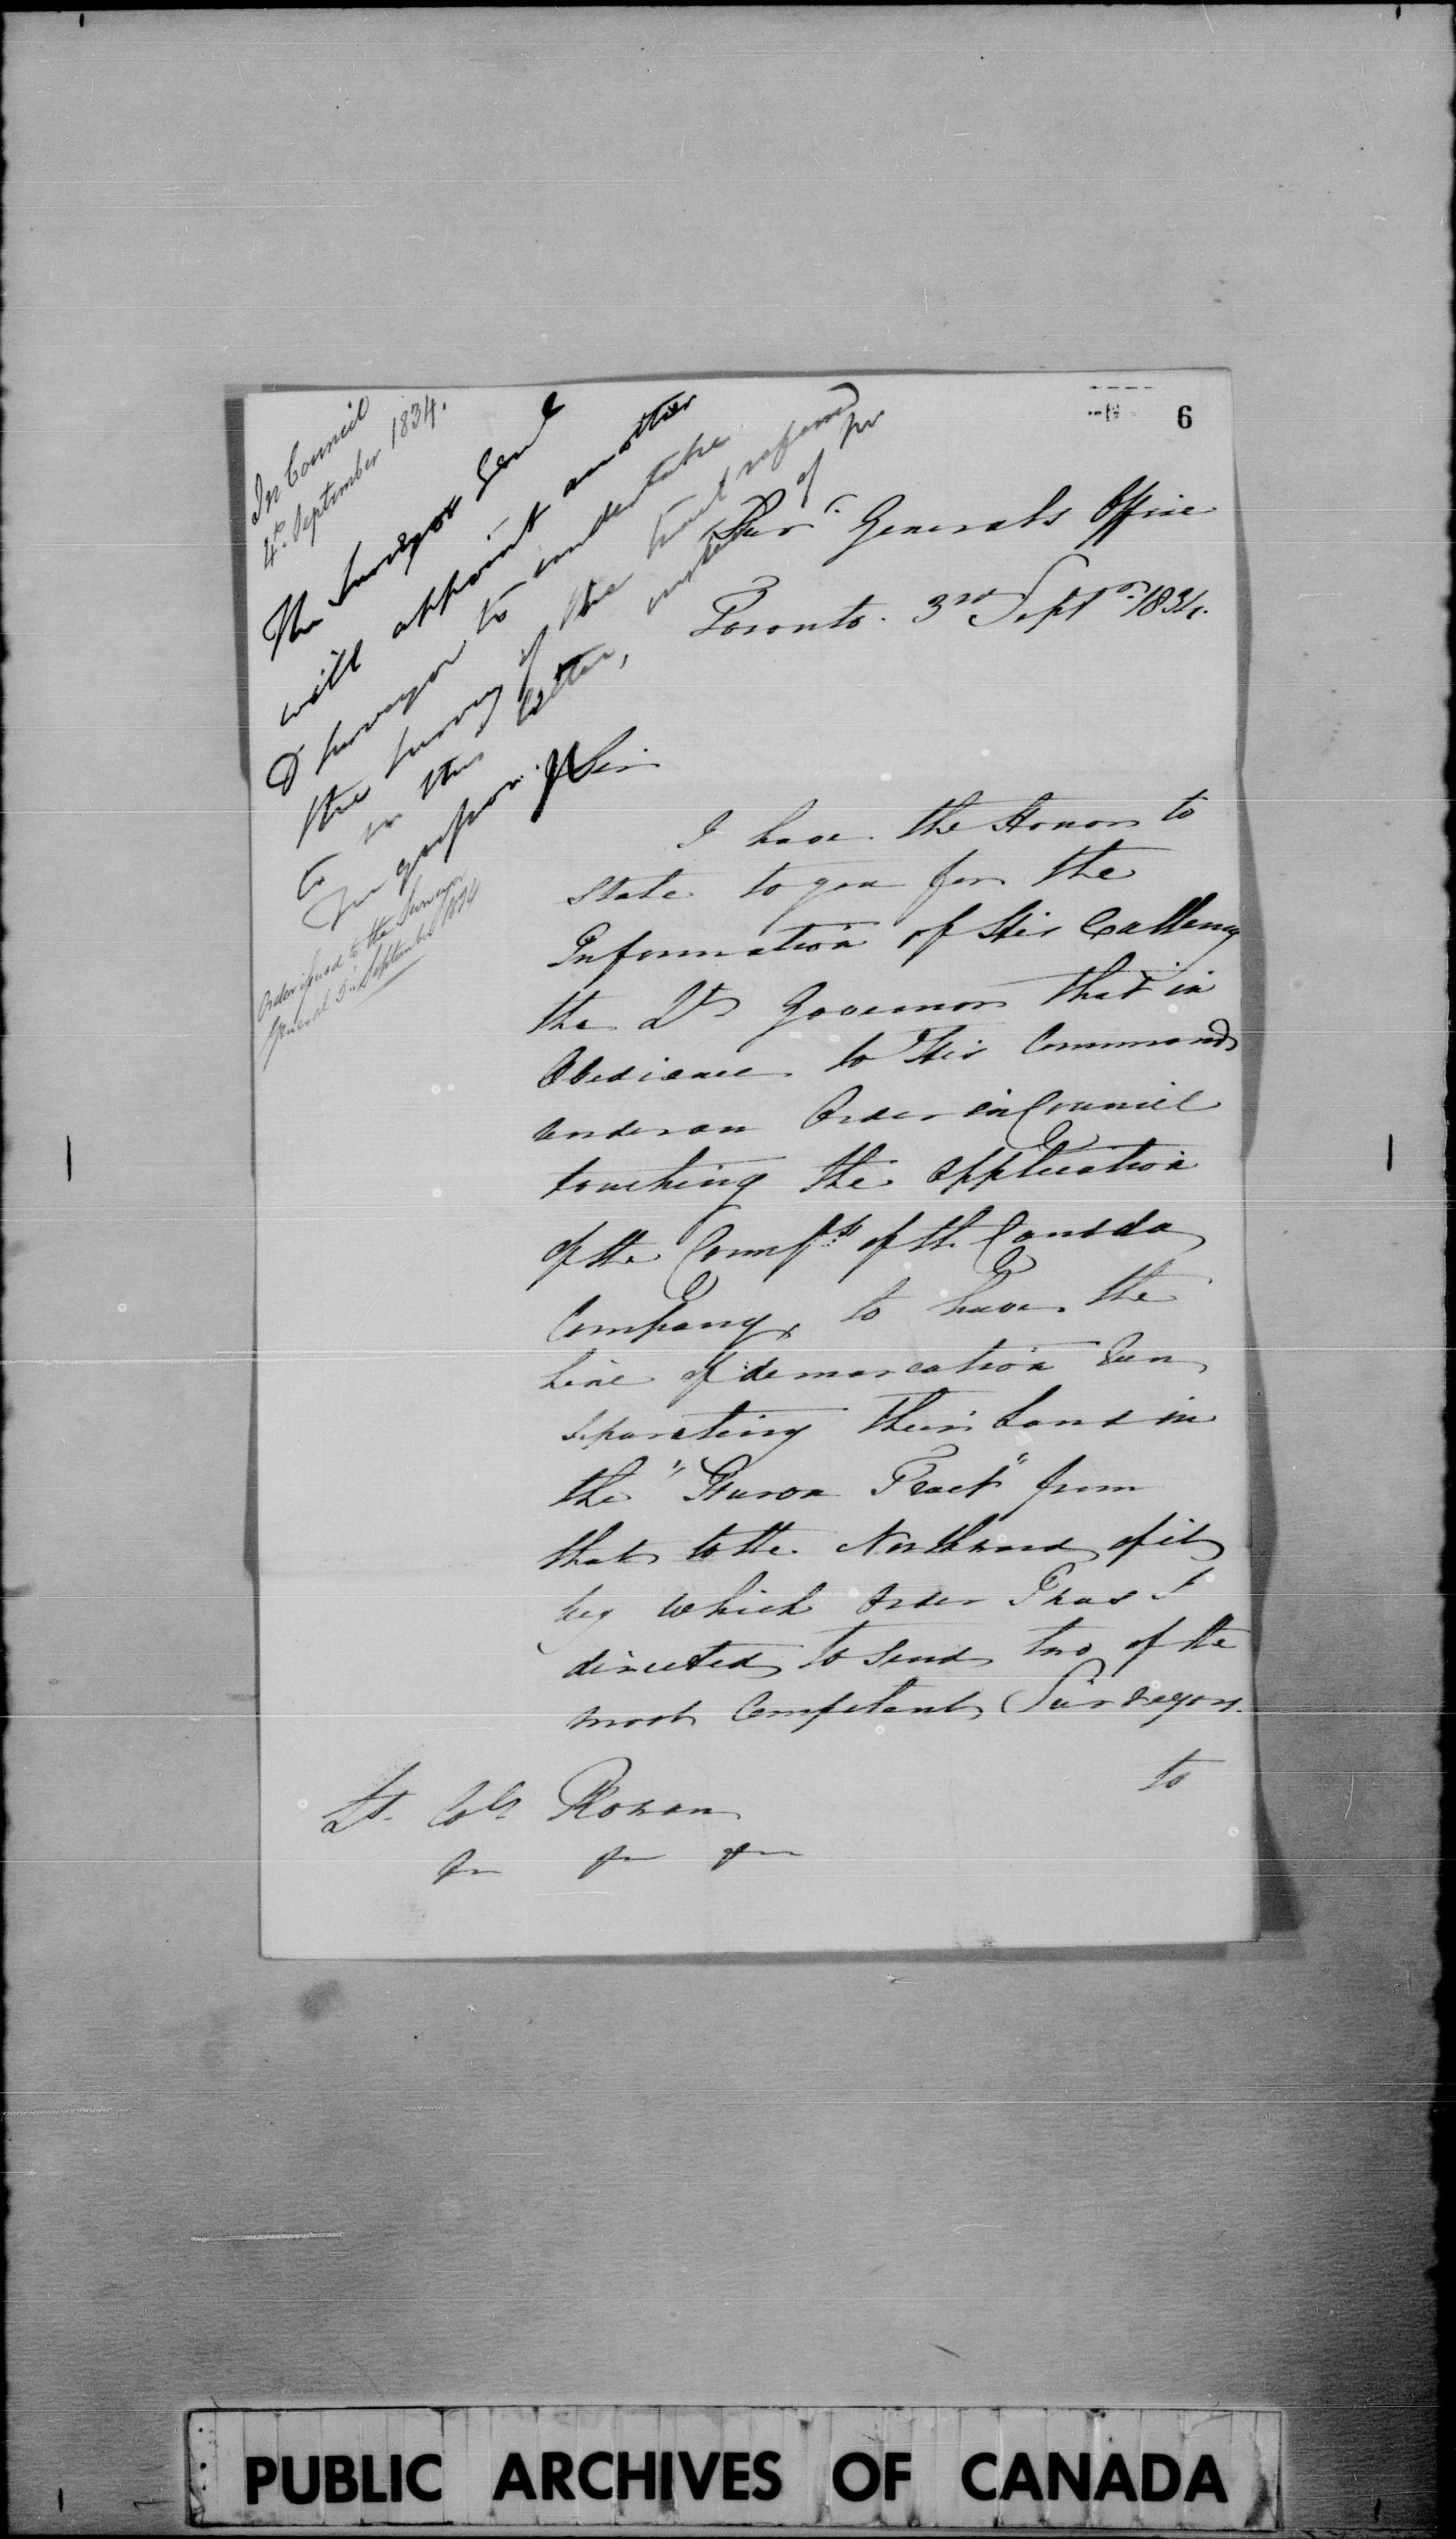 6
In Council
4th September 1834.
The Surveyor Genl
will appoint another
D Surveyor to undertake
the survey of the tract referred
to in this letter, instead of Mr
McGregor.
Order issued to the Surveyor
General 5th September 1834
Surr. Generals Office
Toronto. 3rd Septr. 1834.
Sir
I have the Honor to
State to you for the
Information of His Excellency
the Lt Governor that in
Obedience to His Commands
under an Order in Council
touching the application
of the Commrs. of the Canada
Company, to have the
line of demarcation run
separating their Land in
the "Huron Tract" from
that to the Northward of it
by which Order I was
directed to send two of the
most Competent Surveyors.
to
Lt. Coll Rowan